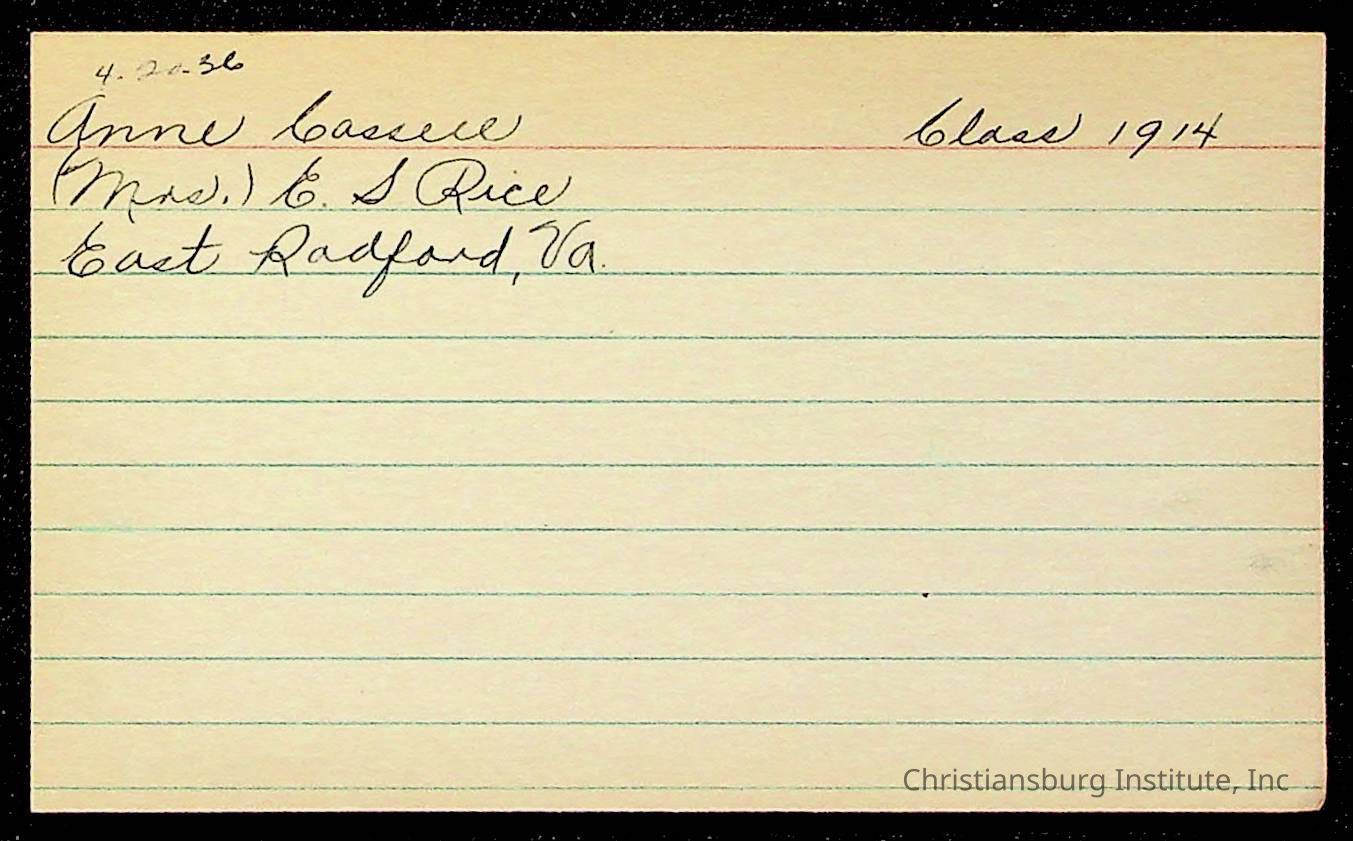 4-20-36
Anne Cassell Class 1914
(Mrs.) E. S Rice
East Radford, Va.
Christiansburg Institute, Inc